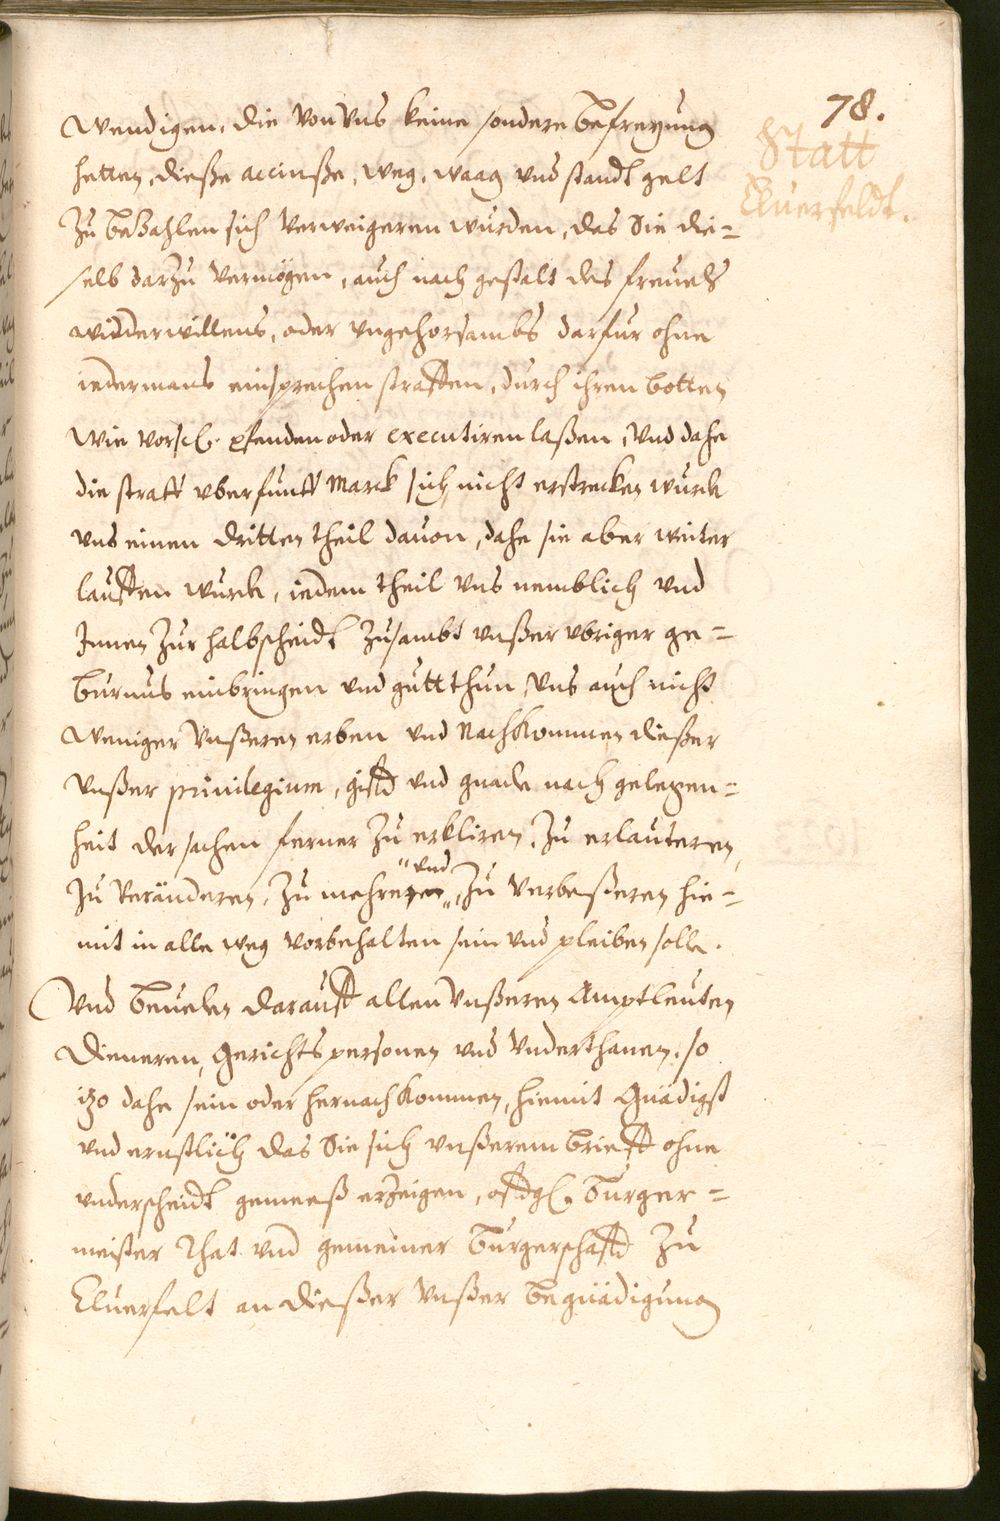 78.
Statt
Eluerfeldt.
wendigen, die von Vns keine sondere befreyung
hetten, dieße accinße, weg, waag vnd standt gelt
zu bezahlen sich verweigeren wurden, das Sie die=
selb darzu vermögen, auch nach gestalt des freuels
widderwillens, oder vngehorsambs darfur ohne
iedermans einsprechen straffen, durch ihren botten
wie vorscl. pfenden oder executiren laßen, Vnd dahe
die straff vber funff Marck sich nicht erstrecken wurde
vns einen dritten theil dauon, dahe sie aber weiter
lauffen wurde, iedem theil vns nemblich vnd
Innen zur halbscheidt zusambt vnßer vbriger ge=
burnus einbringen vnd gutt thun, Vns auch nicht
weniger Vnßeren erben vnd Nachkommen dießer
vnßer priuilegium, gifft vnd gnade nach gelegen=
heit der sachen ferner zu erkliren, zu erlauteren,
zu veränderen, zu mehren "vnd" zu verbeßeren hie=
mit in alle weg vorbehalten sein vnd pleiben solle.
Vnd beuelen darauff allen Vnßeren Amptleuten,
Dieneren, Gerichts personen vnd Vnderthanen, so
itzo dahe sein oder hernach kommen, hiemit Gnädigst
vnd ernstlich das Sie sich vnßerem brieff ohne
vnderscheidt gemeeß erzeigen, offtgl. Burger=
meister Rhat vnd gemeiner Burgerschafft zu
Eluerfelt an dießer Vnßer Begnädigung